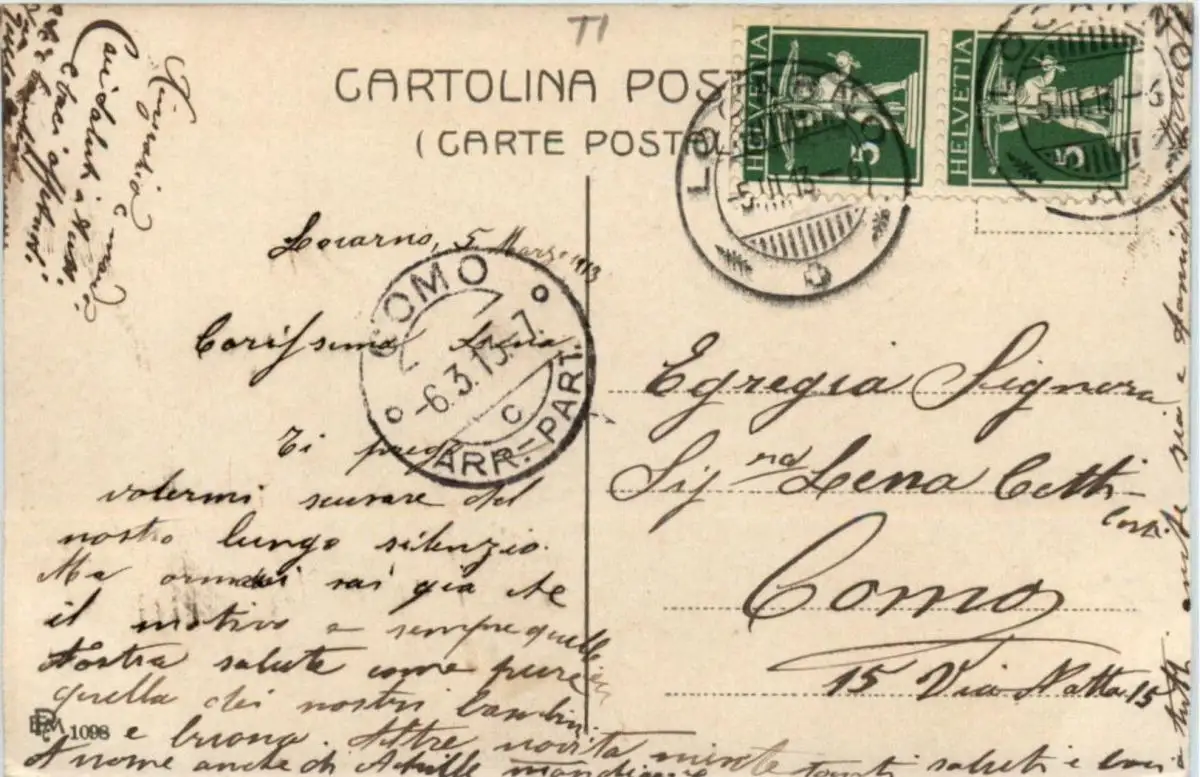 TI
CARTOLINA POST
(CARTE POSTAL
HELVETIA
5
HELVETIA
5
LOCARNO
-5.III.13.-6
5.III.13-6
COMO
-6.3.13.-7.
C
ARR.-PART.
Locarno, 5 Marzo 1913
Carissima Lena
Ti prego
volermi scusare del
nostro lungo silenzio.
Ma ormai sai già che
il motivo e sempre quello
Nostra salute come pure
quella dei nostri bambini
e buona. Altre novità niente
A nome anche di Achille tanti saluti e baci
a tutti
sia e famiglia
Egregia Signora
Sigra Lena Cetti-
Como
15 Via Natta 15
Cari saluti a
e baci affettuosi
1098